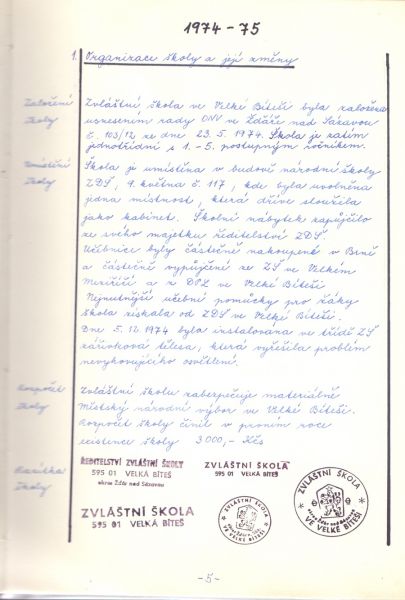 1974-75
1. Organizace školy a její změny
Založení školy
Zvláštní škola ve Velké Bíteši byla založena
usnesením rady ONV ve Žďáře nad Sázavou
č. 103/12 ze dne 23. 5. 1974. Škola je zatím
jednotřídní s 1.-5. postupným ročníkem.
Umístění školy
Škola je umístěna v budově národní školy
ZDŠ, 9. května č. 117, kde byla uvolněna
jedna místnost, která dříve sloužila
jako kabinet. Školní nábytek zapůjčilo
ze svého majetku ředitelství ZDŠ.
Učebnice byly částečně nakoupené v Brně
a částečně vypůjčené ze ZŠ ve Velkém
Meziříčí a z DPL ve Velké Bíteši
Nejnutnější učební pomůcky pro žáky
škola získala od ZDŠ ve Velké Bíteši.
Dne 5. 12. 1974 byla instalována ve třídě ZŠ
zářivková tělesa, která vyřešila problém
nevyhovujícího osvětlení.
Rozpočet školy
Zvláštní školu zabezpečuje materiálně
Městský národní výbor ve Velké Bíteši.
Rozpočet školy činil v prvním roce
existence školy 3 000,- Kčs
Razítka školy
ŘEDITELSTVÍ ZVLÁŠTNÍ ŠKOLY
595 01 VELKÁ BÍTEŠ
okres Žďár nad Sázavou
ZVLÁŠTNÍ ŠKOLA
595 01 VELKÁ BÍTEŠ
ZVLÁŠTNÍ ŠKOLA
595 01 VELKÁ BÍTEŠ
ZVLÁŠTNÍ ŠKOLA
okres Žďár nad Sázavou
VE VELKÉ BÍTEŠI
ZVLÁŠTNÍ ŠKOLA
okres Žďár nad Sázavou
VE VELKÉ BÍTEŠI
-5-